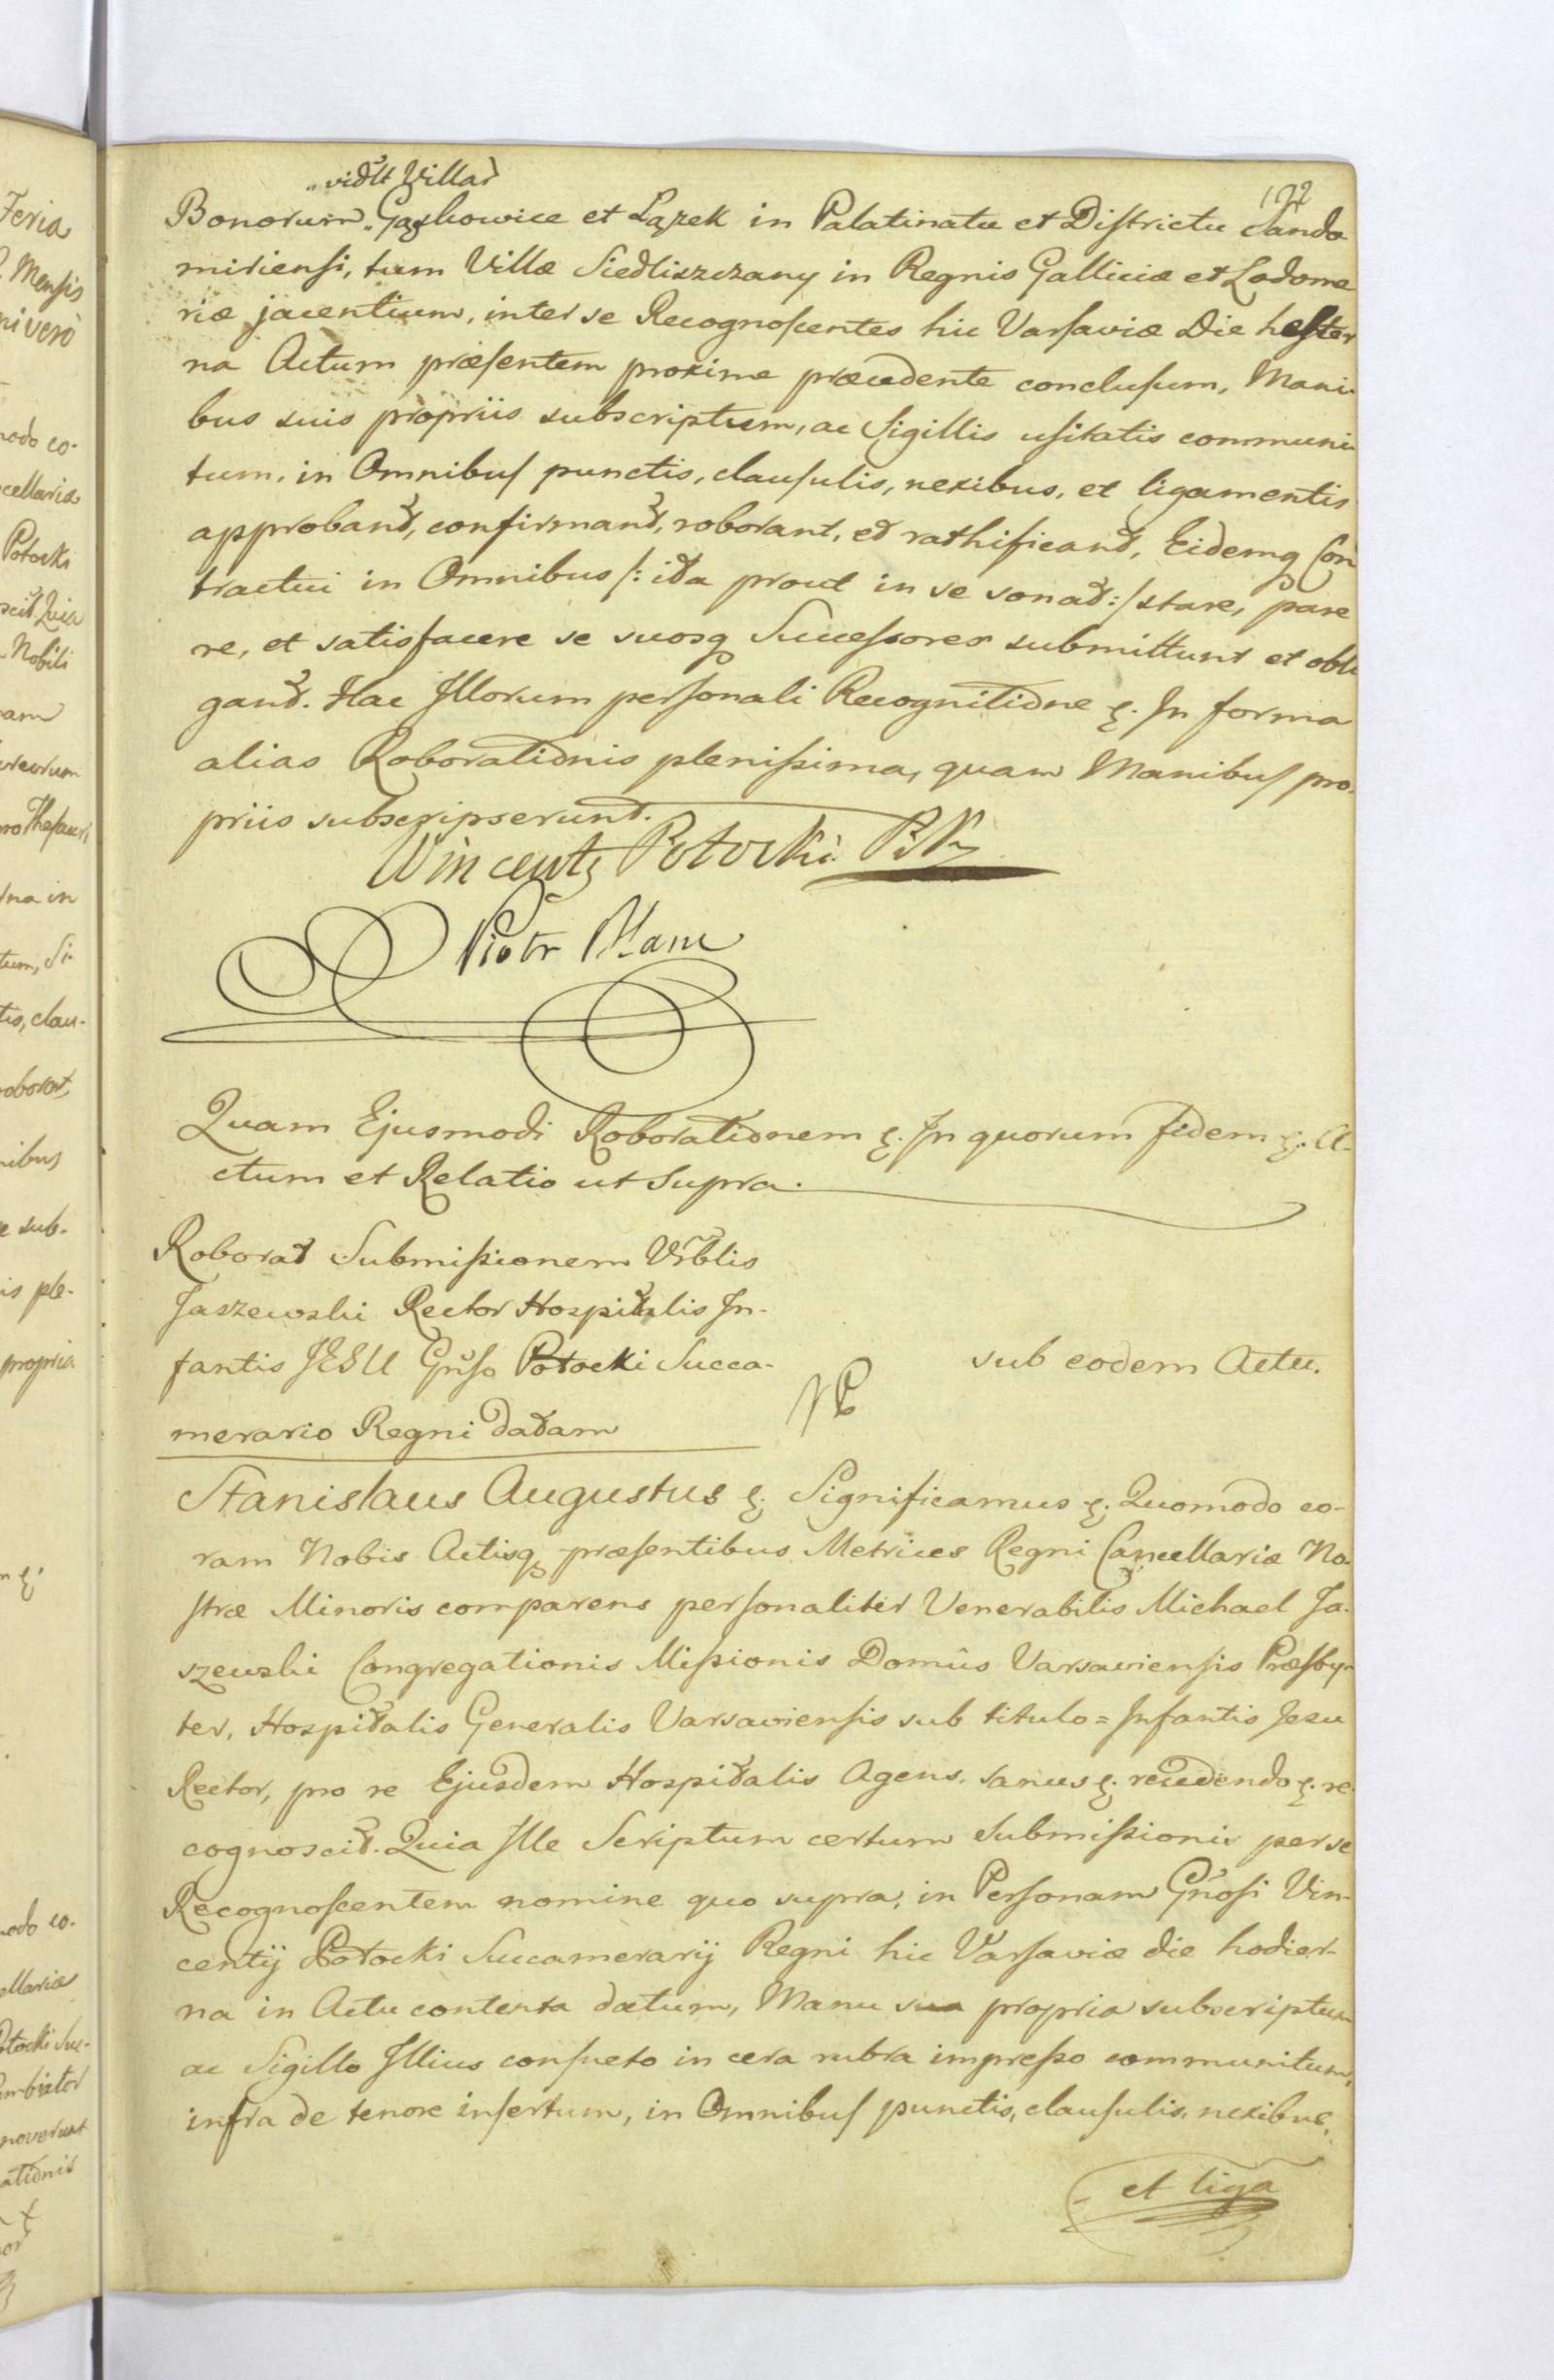 122
"vidlt Villar
Bonorum "Gaykowice et Lązek in Palatinatu et Districtu Sando
miriensi, tum Villæ Siedliszczany in Regnis Galliciæ et Lodome
riæ jacentium, inter se Recognoscentes hic Varsaviæ Die hester
na Actum præsentem proxime præcedente conclusum, Mani-
bus suis propriis subscriptum, ac Sigillis usitatis communi-
tum, in Omnibus punctis, clausulis, nexibus, et ligamentis
approbant, confirmant, roborant, et rathificant, Eidemq Con
tractui in Omnibus /: ita prout in se sonat :/ stare, pare
re, et satisfacere se suosq Successores submittunt et obli
gant. Hac Illorum personali Recognitione &. In forma
alias Roborationis plenissima, quam Manibus pro-
priis subscripserunt.
Wincenty Potocki PK
Piotr Blanc
Quam Ejusmodi Roborationem &. In quorum fidem &. A-
ctum et Relatio ut Supra.
Roborat Submissionem Vrblis
Jaszewski Rector Hospitalis In-
fantis JESU Gnso Potocki Succa-
merario Regni datam
sub eodem Actu.
Stanislaus Augustus &. Significamus &. Quomodo co-
ram Nobis Actisq præsentibus Metrices Regni Cancellariæ No-
stræ Minoris comparens personaliter Venerabilis Michael Ja-
szewski Congregationis Missionis Domûs Varsaviensis Præsby-
ter, Hospitalis Generalis Varsaviensis sub titulo = Infantis Jesu
Rector, pro re Ejusdem Hospitalis Agens, sanus &. recedendo &. re-
cognoscit. Quia Ille Scriptum certum Submissionis per se
Recognoscentem nomine quo supra, in Personam Gnosi Vin-
centij Potocki Succamerarij Regni hic Varsaviæ die hodier-
na in Actu contenta datum, Manu sua propria subscriptum
ac Sigillo Illius consueto in cera rubra impresso communitum,
infra de tenore insertum, in Omnibus punctis, clausulis, nexibus,
et liga